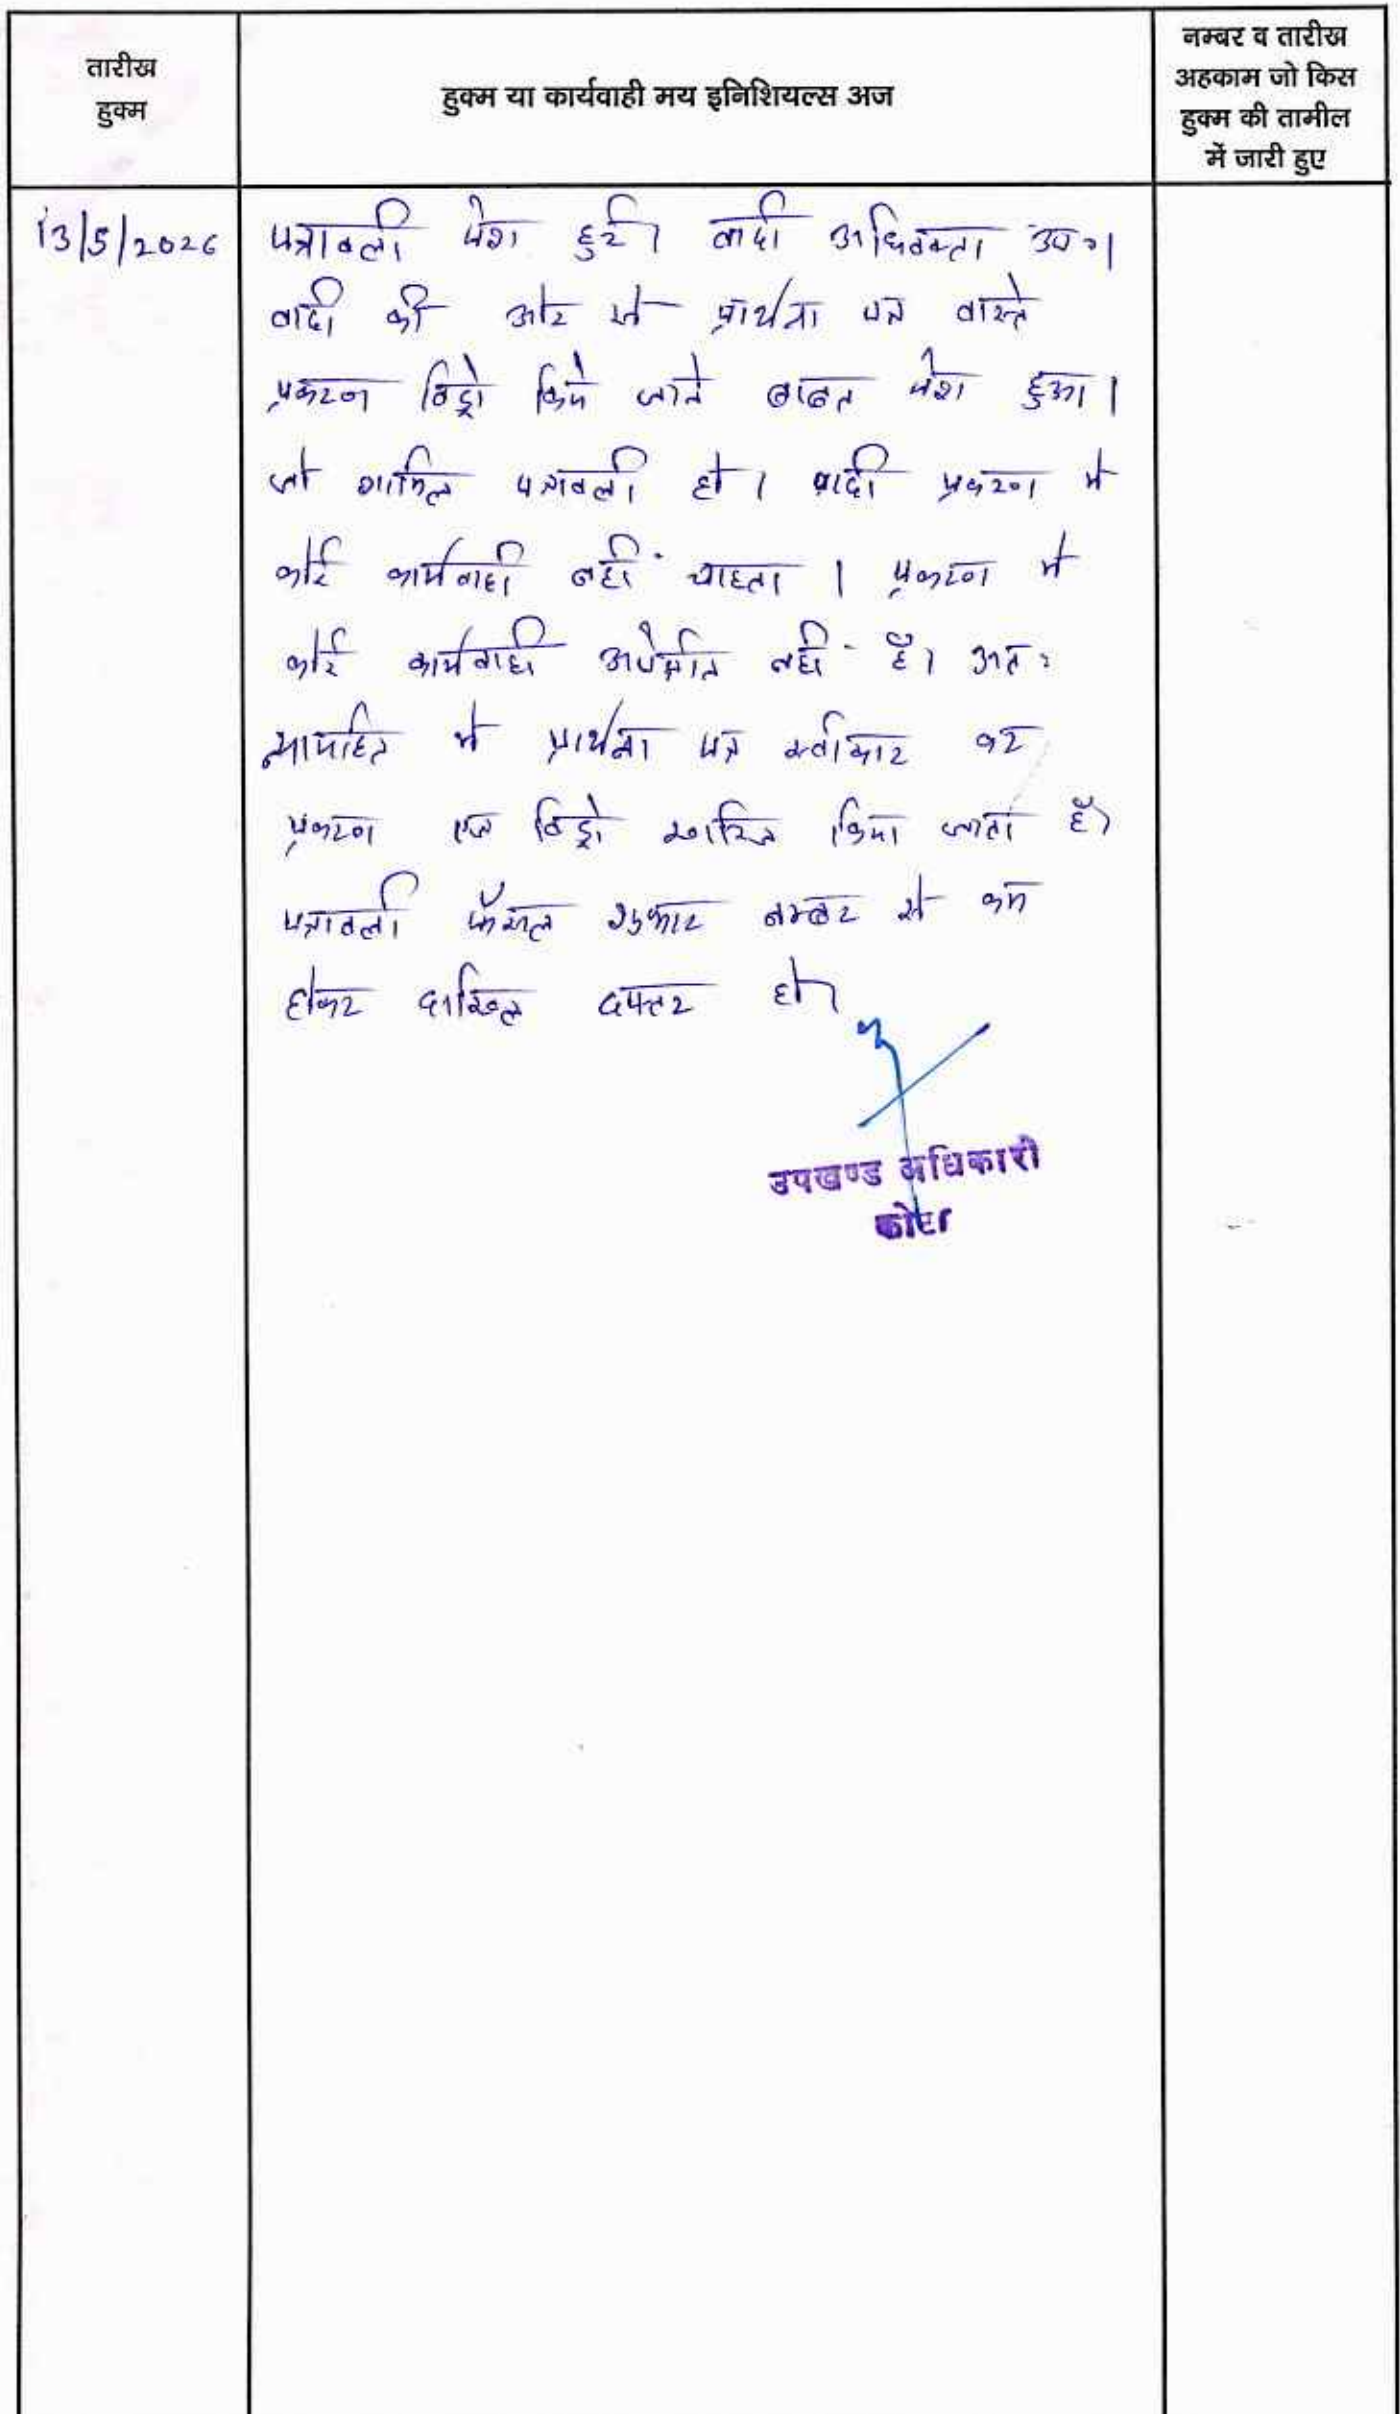 तारीख
हुक्म
हुक्म या कार्यवाही मय इनिशियल्स अज
नम्बर व तारीख
अहकाम जो किस
हुक्म की तामील
में जारी हुए
13/5/2026
पत्रावली पेश हुई। वादी अधिवक्ता उप०।
वादी की ओर से प्रार्थना पत्र वास्ते
प्रकरण विड्रो किये जाने बाबत पेश हुआ।
जो शामिल पत्रावली हो। वादी प्रकरण में
कोई कार्यवाही नहीं चाहता। प्रकरण में
कोई कार्यवाही अपेक्षित नहीं है। अतः
न्यायहित में प्रार्थना पत्र स्वीकार कर
प्रकरण एज विड्रो खारिज किया जाता है।
पत्रावली फैसल शुमार नम्बर से कम
होकर दाखिल दफ्तर हो।
उपखण्ड अधिकारी
कोटा